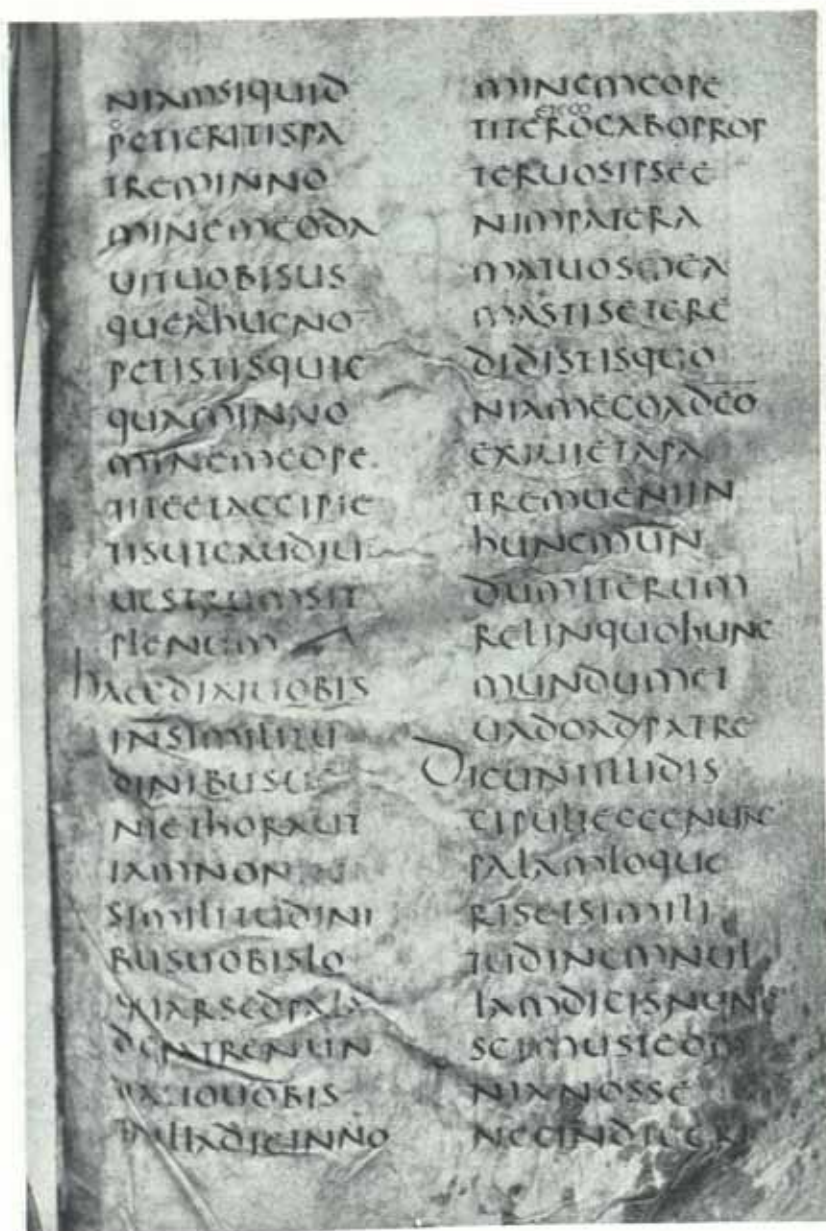 NIAMSIQUID
PETIERITISPA
TREMINNO
MINEMEODA
UITUOBISUS
QUEAdHUCNO
PETISTISQUIC
QUAMINNO
MINEMEOPE
TITEETACCIPIE
TISUTGAUDIU
UESTRUMSIT
PLENUM
HAECDIXIUOBIS
INSIMILITU
DINIBUSUE
NIETHORAUT
IAMNON
SIMILITUDINI
BUSUOBISLO
QUARSEDPALA
DEPATRENUN
UOBIS
INILLADIEINNO
MINEMEOPE
TITEROGABOPROP
TERUOSIPSEE
NIMPATERA
MATUOSMEA
MASTISETCRE
DIDISTISQUO
NIAMEGOADEO
EXIUIETAPA
TREMUENIIN
HUNCMUN
DUMITERUM
RELINQUOHUNC
MUNDUMET
UADOADPATRE
DICUNTILLIDIS
CIPULIECCENUNC
PALAMLOQUE
RISETSIMILI
TUDINEMNUL
LAMDICISNUNC
SCIMUSTEOM
NIANOSSE
NECINDIGERI